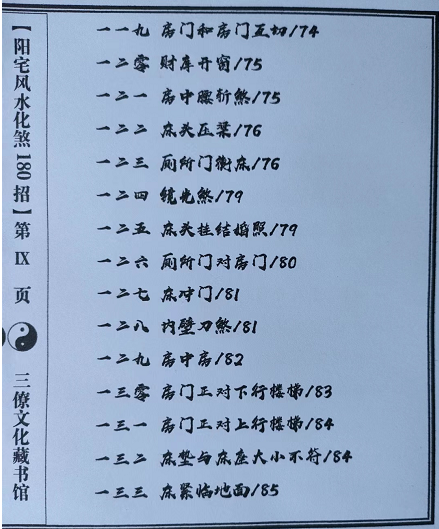 【阳宅风水化煞180招】第 IX 页
三僚文化藏书馆
一一九 房门和房门互切/74
一二零 财库开窗/75
一二一 房中腰斩煞/75
一二二 床头压梁/76
一二三 厕所门衡床/76
一二四 镜光煞/79
一二五 床头挂结婚照/79
一二六 厕所门对房门/80
一二七 床冲门/81
一二八 内壁刀煞/81
一二九 房中房/82
一三零 房门正对下行楼梯/83
一三一 房门正对上行楼梯/84
一三二 床垫与床座大小不符/84
一三三 床紧临地面/85